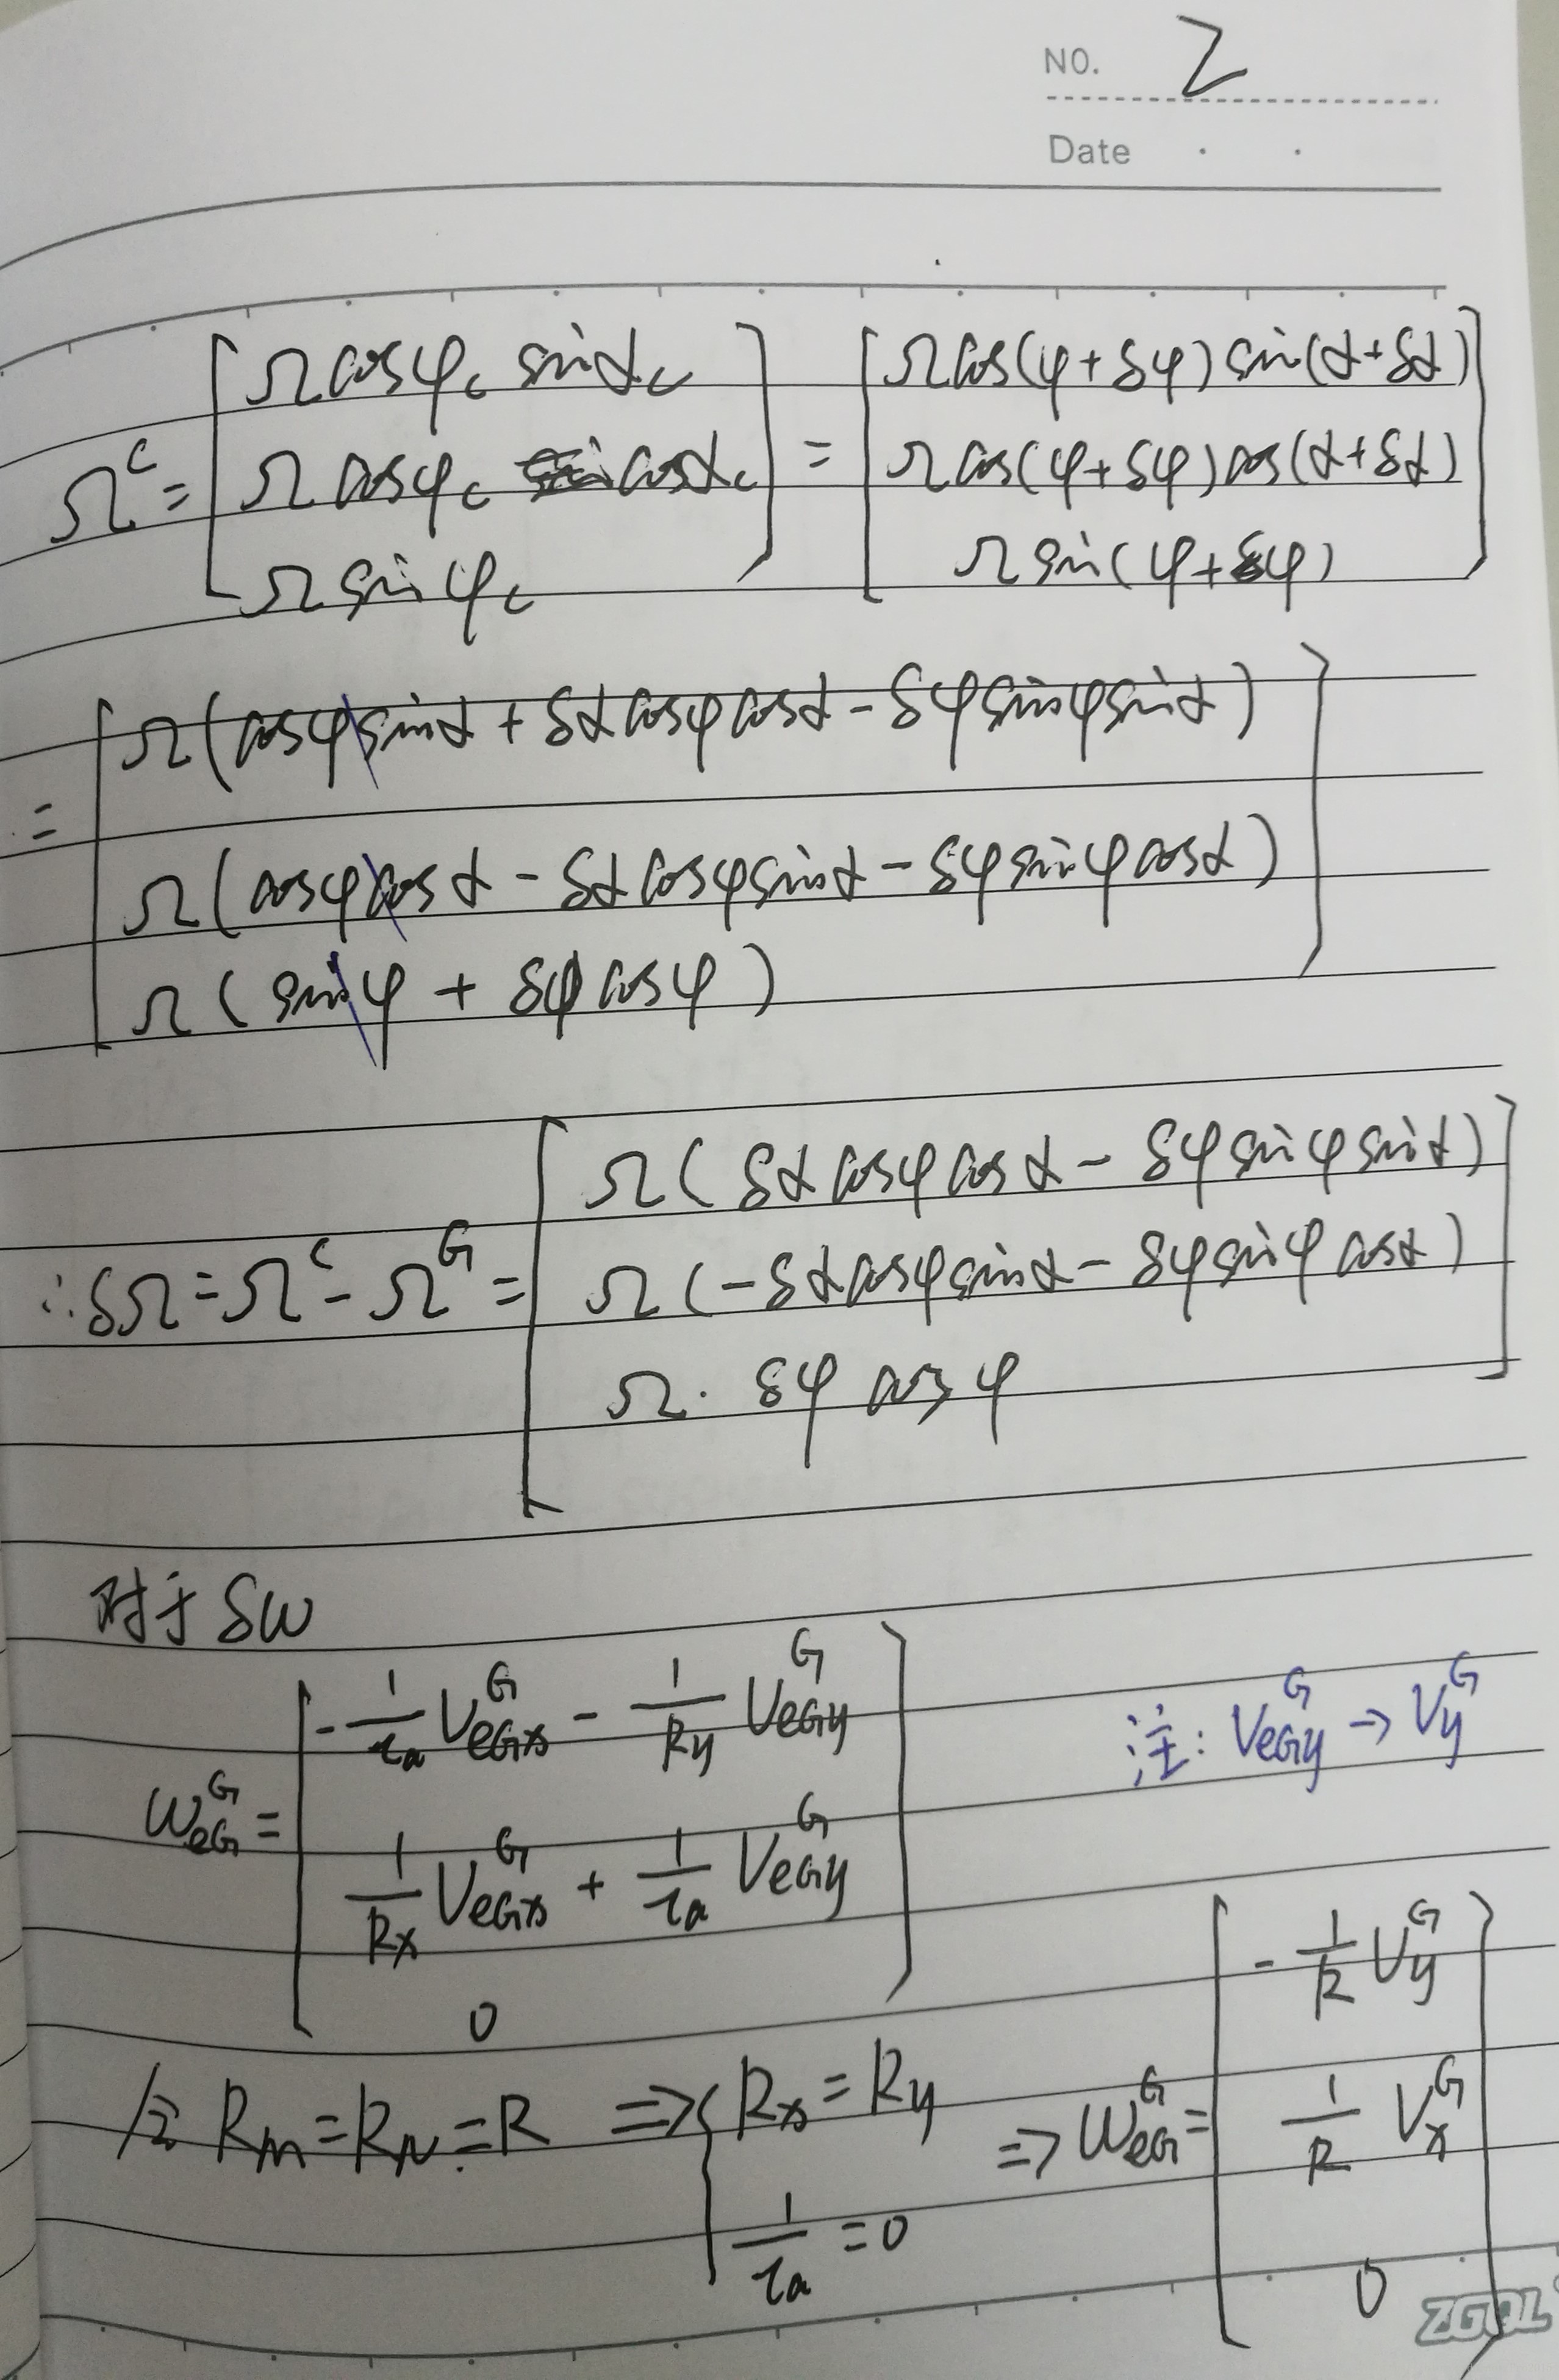 NO. 2
Date · ·
Ω^c = [Ωcosφ_c sinα_c; Ωcosφ_c cosα_c; Ωsinφ_c] = [Ωcos(φ+δφ)sin(α+δα); Ωcos(φ+δφ)cos(α+δα); Ωsin(φ+δφ)]
= [Ω(cosφsinα + δαcosφcosα - δφsinφsinα); Ω(cosφcosα - δαcosφsinα - δφsinφcosα); Ω(sinφ + δφcosφ)]
∴δΩ = Ω^c - Ω^G = [Ω(δαcosφcosα - δφsinφsinα); Ω(-δαcosφsinα - δφsinφcosα); Ω·δφcosφ]
对于δω
ω_eG^G = [-1/τ_a V_eGx^G - 1/R_y V_eGy^G; 1/R_x V_eGx^G + 1/τ_a V_eGy^G; 0]
注: V_eGy^G → V_y^G
R_m = R_N = R ⇒ { R_x = R_y; 1/τ_a = 0 ⇒ ω_eG^G = [-1/R V_y^G; 1/R V_x^G; 0]
ZGOL